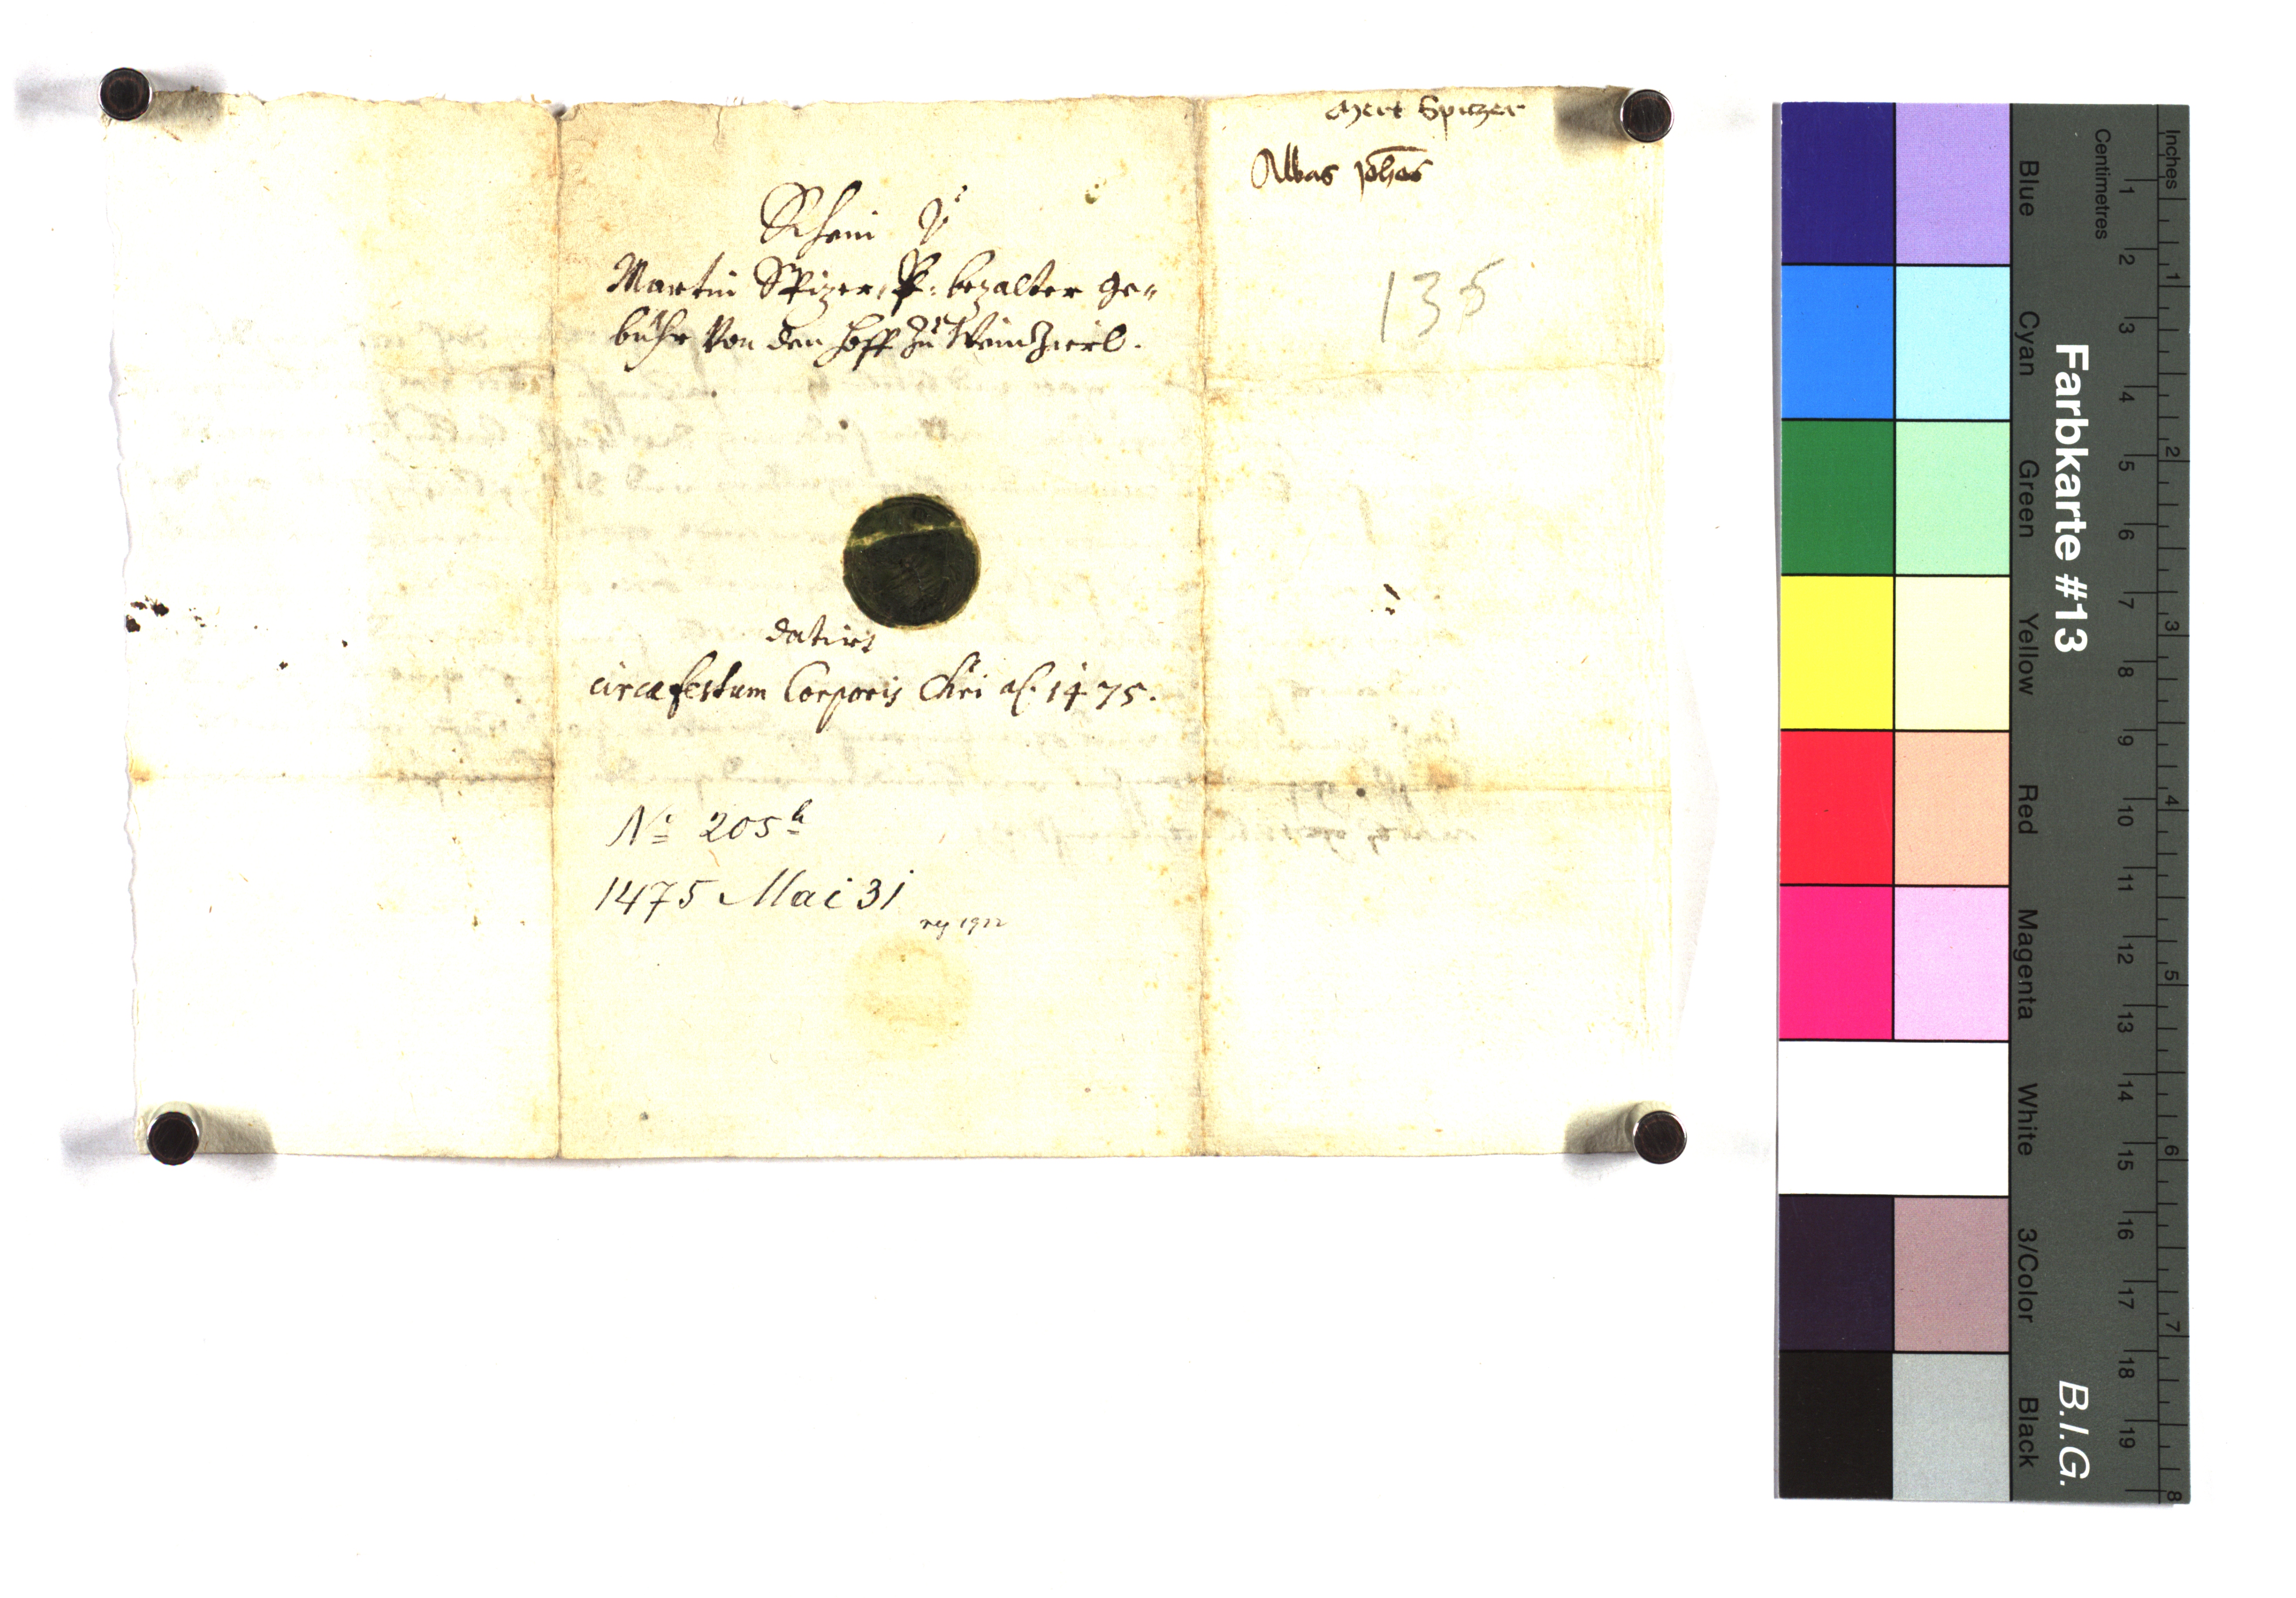 Mert Spitzer
Abbas Joh̅es
135
Schein
Martin Spizer, P: bezalter ge„
bühr Von den Hoff zu Weinzierl.
datirt
circa festum Corporis Chri aō. 1475.
No 205 b
1475 Mai 31
reg 1912
Farbkarte #13
B.I.G.
Inches 1 2 3 4 5 6 7 8
Centimetres 1 2 3 4 5 6 7 8 9 10 11 12 13 14 15 16 17 18 19
Blue Cyan Green Yellow Red Magenta White 3/Color Black